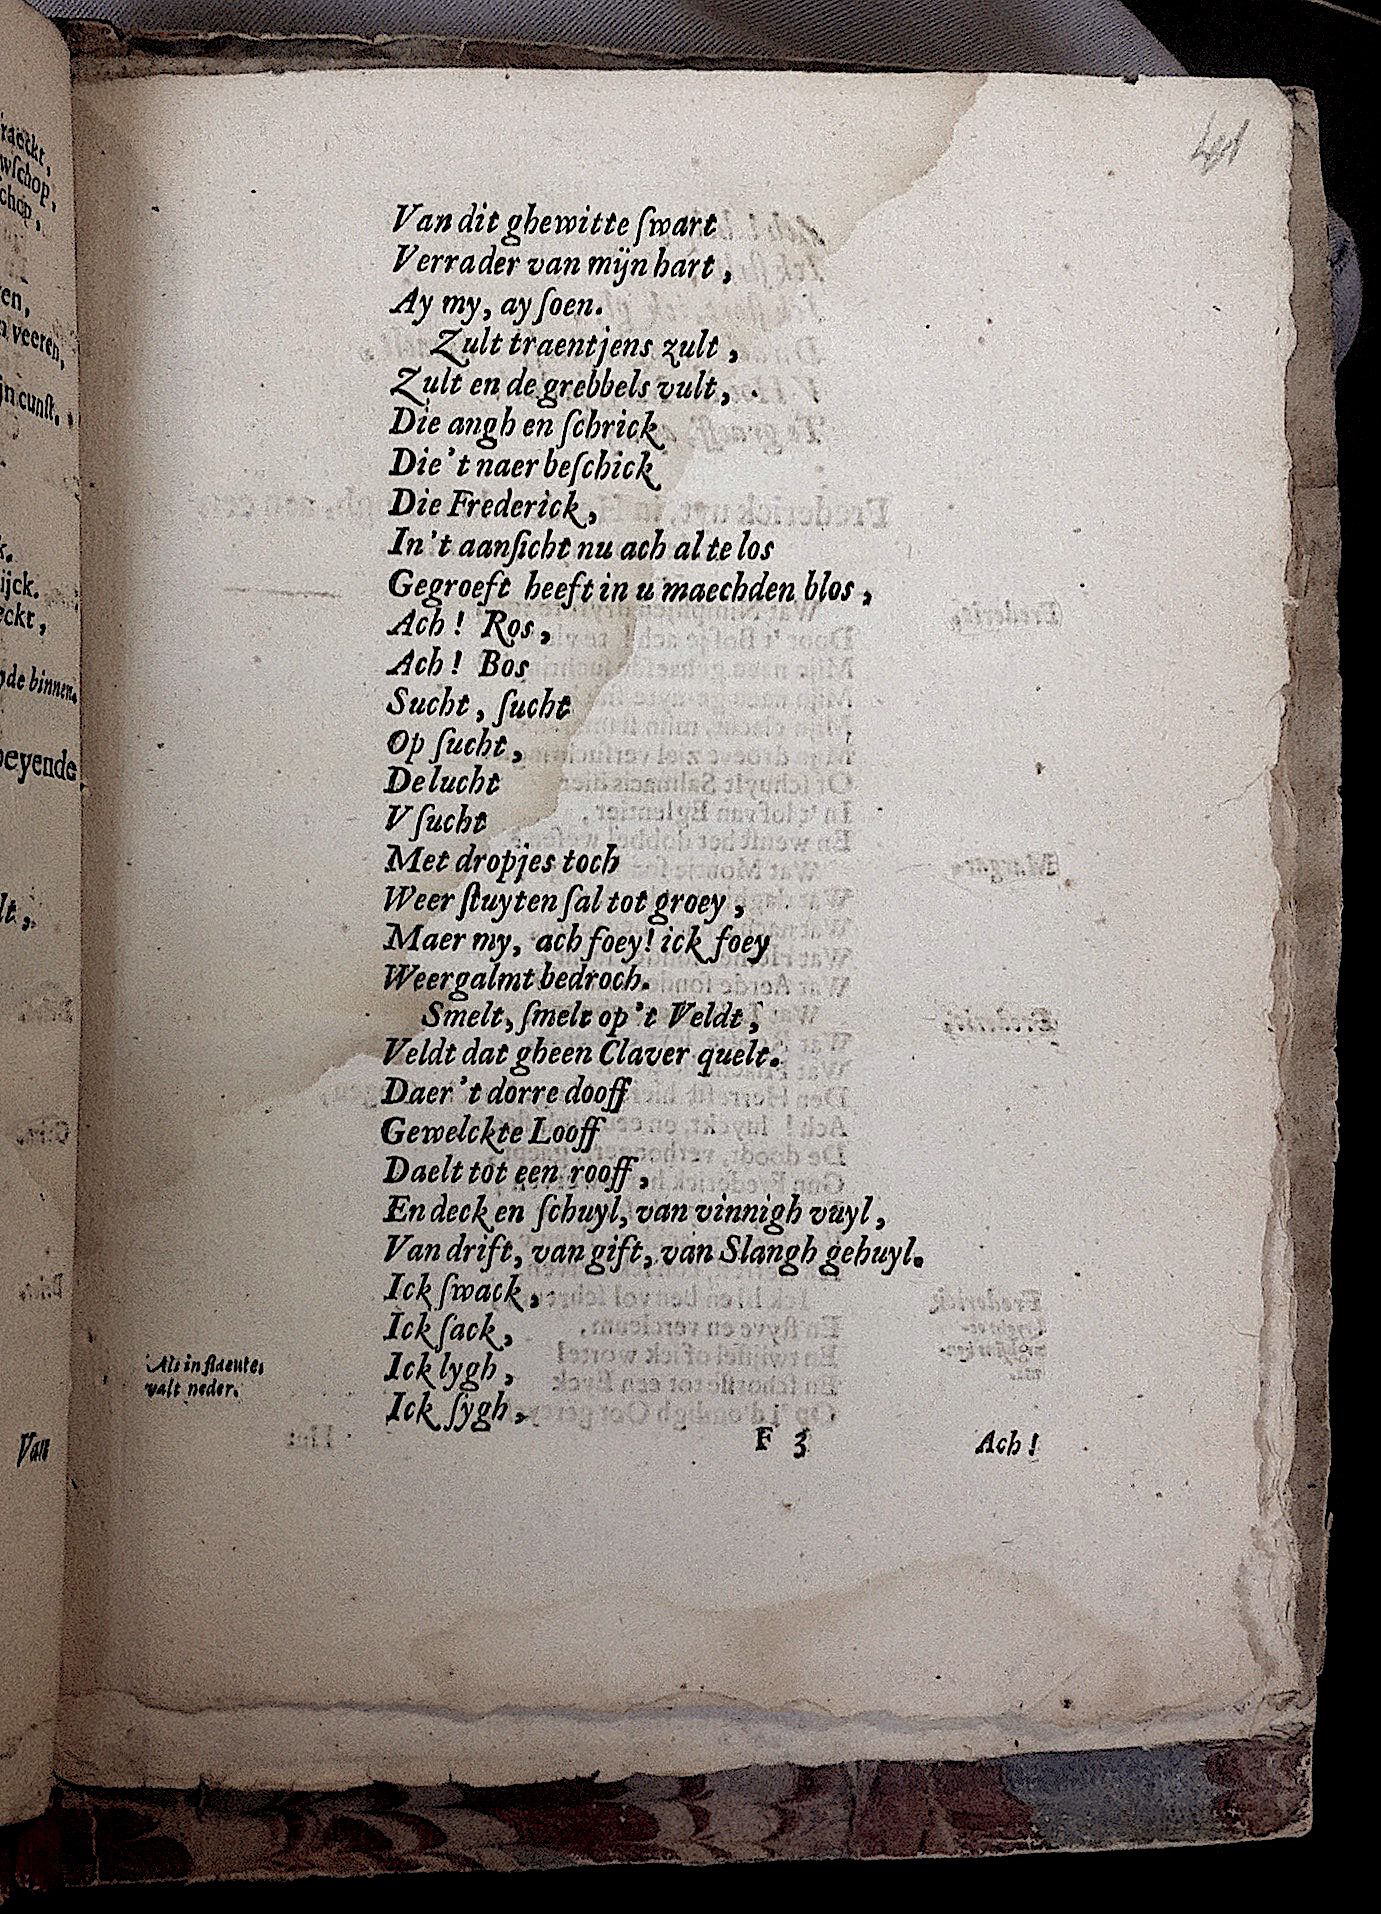 Van dit ghewitte ſwart
Verrader van mijn hart,
Ay my, ay ſoen.
Zult traentjens zult,
Zult en de grebbels vult,
Die angh en ſchrick
Die't naer beſchick
Die Frederick,
In't aanſicht nu ach al te los
Gegroeft heeft in u maechden blos,
Ach! Ros,
Ach! Bos
Sucht, ſucht
Op ſucht,
De lucht
V ſucht
Met dropjes toch
Weer ſtuyten ſal tot groey,
Maer my, ach foey! ick foey
Weergalmt bedroch.
Smelt, ſmelt op't Veldt,
Veldt dat gheen Claver quelt.
Daer't dorre dooff
Gewelckte Looff
Daelt tot een rooff,
En deck en ſchuyl, van vinnigh vuyl,
Van drift, van gift, van Slangh gehuyl.
Ick ſwack,
Ick ſack,
Als in flaeute,
valt neder.
Ick lygh,
Ick ſygh,
F 3 Ach!
wſchop,
chop,
en,
veeren,
cunſt.
ijck.
de binnen.
beyende
Van